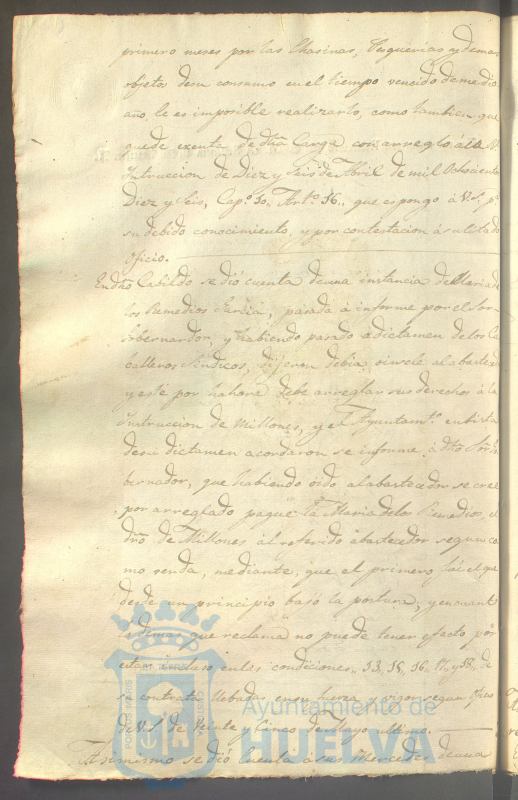 primero meses por las Chasinas, Pesquerias y demas
objetos desu consumo en el tiempo vencido de medio
año, le es imposible realizarlo, como tambien que
quede exenta de dha Carga con arreglo á la
Intruccion de Diez y Seis de Abril de mil Ochocientos
Diez y Seis, Capo 30,, Arto 16,, que espongo á V.S. pa
su debido conocimiento, y por contestacion á su citado
oficio.
En dho Cabildo se dió cuenta de una instancia de Maria de
los Remedios Garcia, pasada á informe por el Sor
Gobernardor, y habiendo pasado a dictamen de los Ca
balleros Sindicos, dijeron debia oirsele al abastecedor
y este por hahora debe arreglar sus derechos á la
Instruccion de Millones, y el Ayuntamto en vista
de su dictamen acordaron se informe á dho Sor Go
bernador, que habiendo oido al abastecedor se cree
por arreglado pague la Maria de los Remedios, el
dro de Millones al referido abastecedor segun co
mo venda, mediante, que el primero fue el que
desde un principio bajó la postura, y en cuanto
lo demas que reclama no puede tener efecto por
estar incluso en las condiciones,, 13, 15, 16, 17, y 18, de
su contrata llebadas en su fuerza y vigor segun oficio
de V.S. de Veinte y Cinco de Mayo ultimo.
Asimismo se dió Cuenta a sus Mercedes de una
Ayuntamiento de
HUELVA